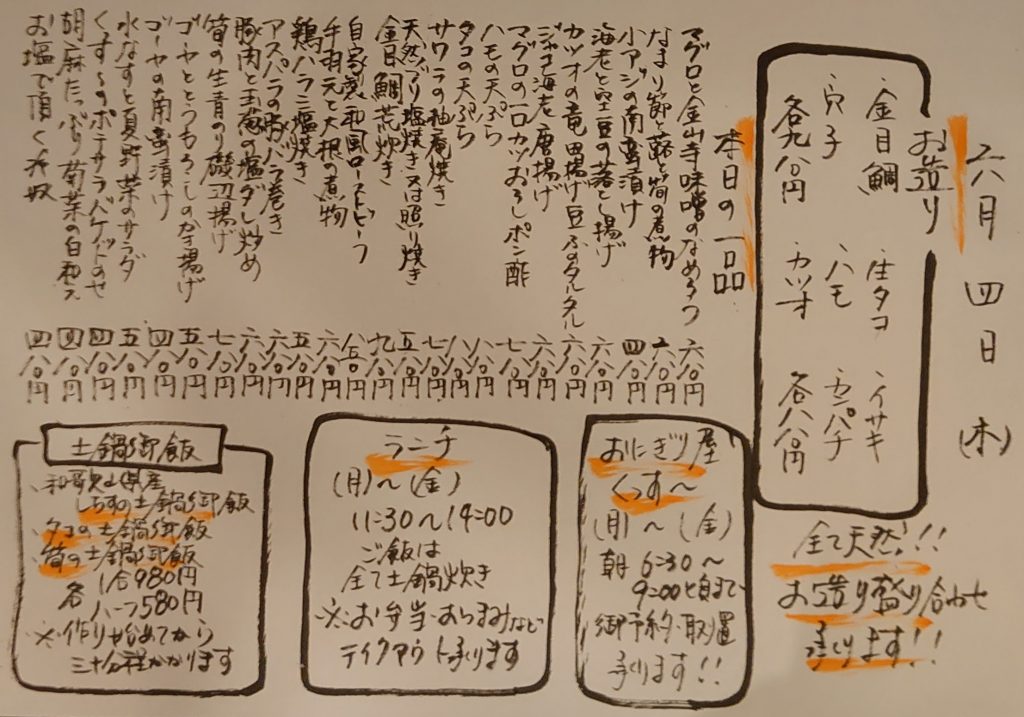 六月四日(木)
お造り
金目鯛 生タコ イサキ
穴子 ハモ カンパチ
各九八〇円 カツオ 各八八〇円
全て天然!!
お造り盛り合わせ
承ります!!
本日の一品
マグロと金山寺味噌のなめろう 六八〇円
なまり節と蕗と筍の煮物
小アジの南蛮漬け 四八〇円
海老と空豆の落とし揚げ 六八〇円
カツオの竜田揚げ豆ふのタルタル 六八〇円
ジャコ海老唐揚げ 六八〇円
マグロの一口カツおろしポン酢 七八〇円
ハモの天ぷら 八八〇円
タコの天ぷら 八八〇円
サワラの柚庵焼き 七八〇円
天然ブリ塩焼き又は照り焼き 五八〇円
金目鯛荒炊き 九八〇円
自家製和風ローストビーフ 八五〇円
手羽元と大根の煮物 六八〇円
鶏ハラミ塩焼き 五八〇円
アスパラの豚バラ巻き 六八〇円
豚肉と玉葱の塩ダレ炒め 六八〇円
筍の生青のり磯辺揚げ 七八〇円
ゴーヤととうもろこしのかき揚げ 五八〇円
ゴーヤの南蛮漬け 四八〇円
水なすと夏野菜のサラダ 五八〇円
くす〜のポテサラバケットのせ 四八〇円
胡麻たっぷり菊菜の白和え 四八〇円
お塩で頂く冷奴 四八〇円
おにぎり屋
くっす〜
(月)〜(金)
朝6:30〜
9:00頃まで
御予約・取置
承ります!!
ランチ
(月)〜(金)
11:30〜14:00
ご飯は
全て土鍋炊き
※お弁当・おつまみなど
テイクアウト承ります
土鍋御飯
和歌山県産
しらすの土鍋御飯
タコの土鍋御飯
筍の土鍋御飯
各 1合980円
ハーフ580円
※作り始めてから
三十分程かかります